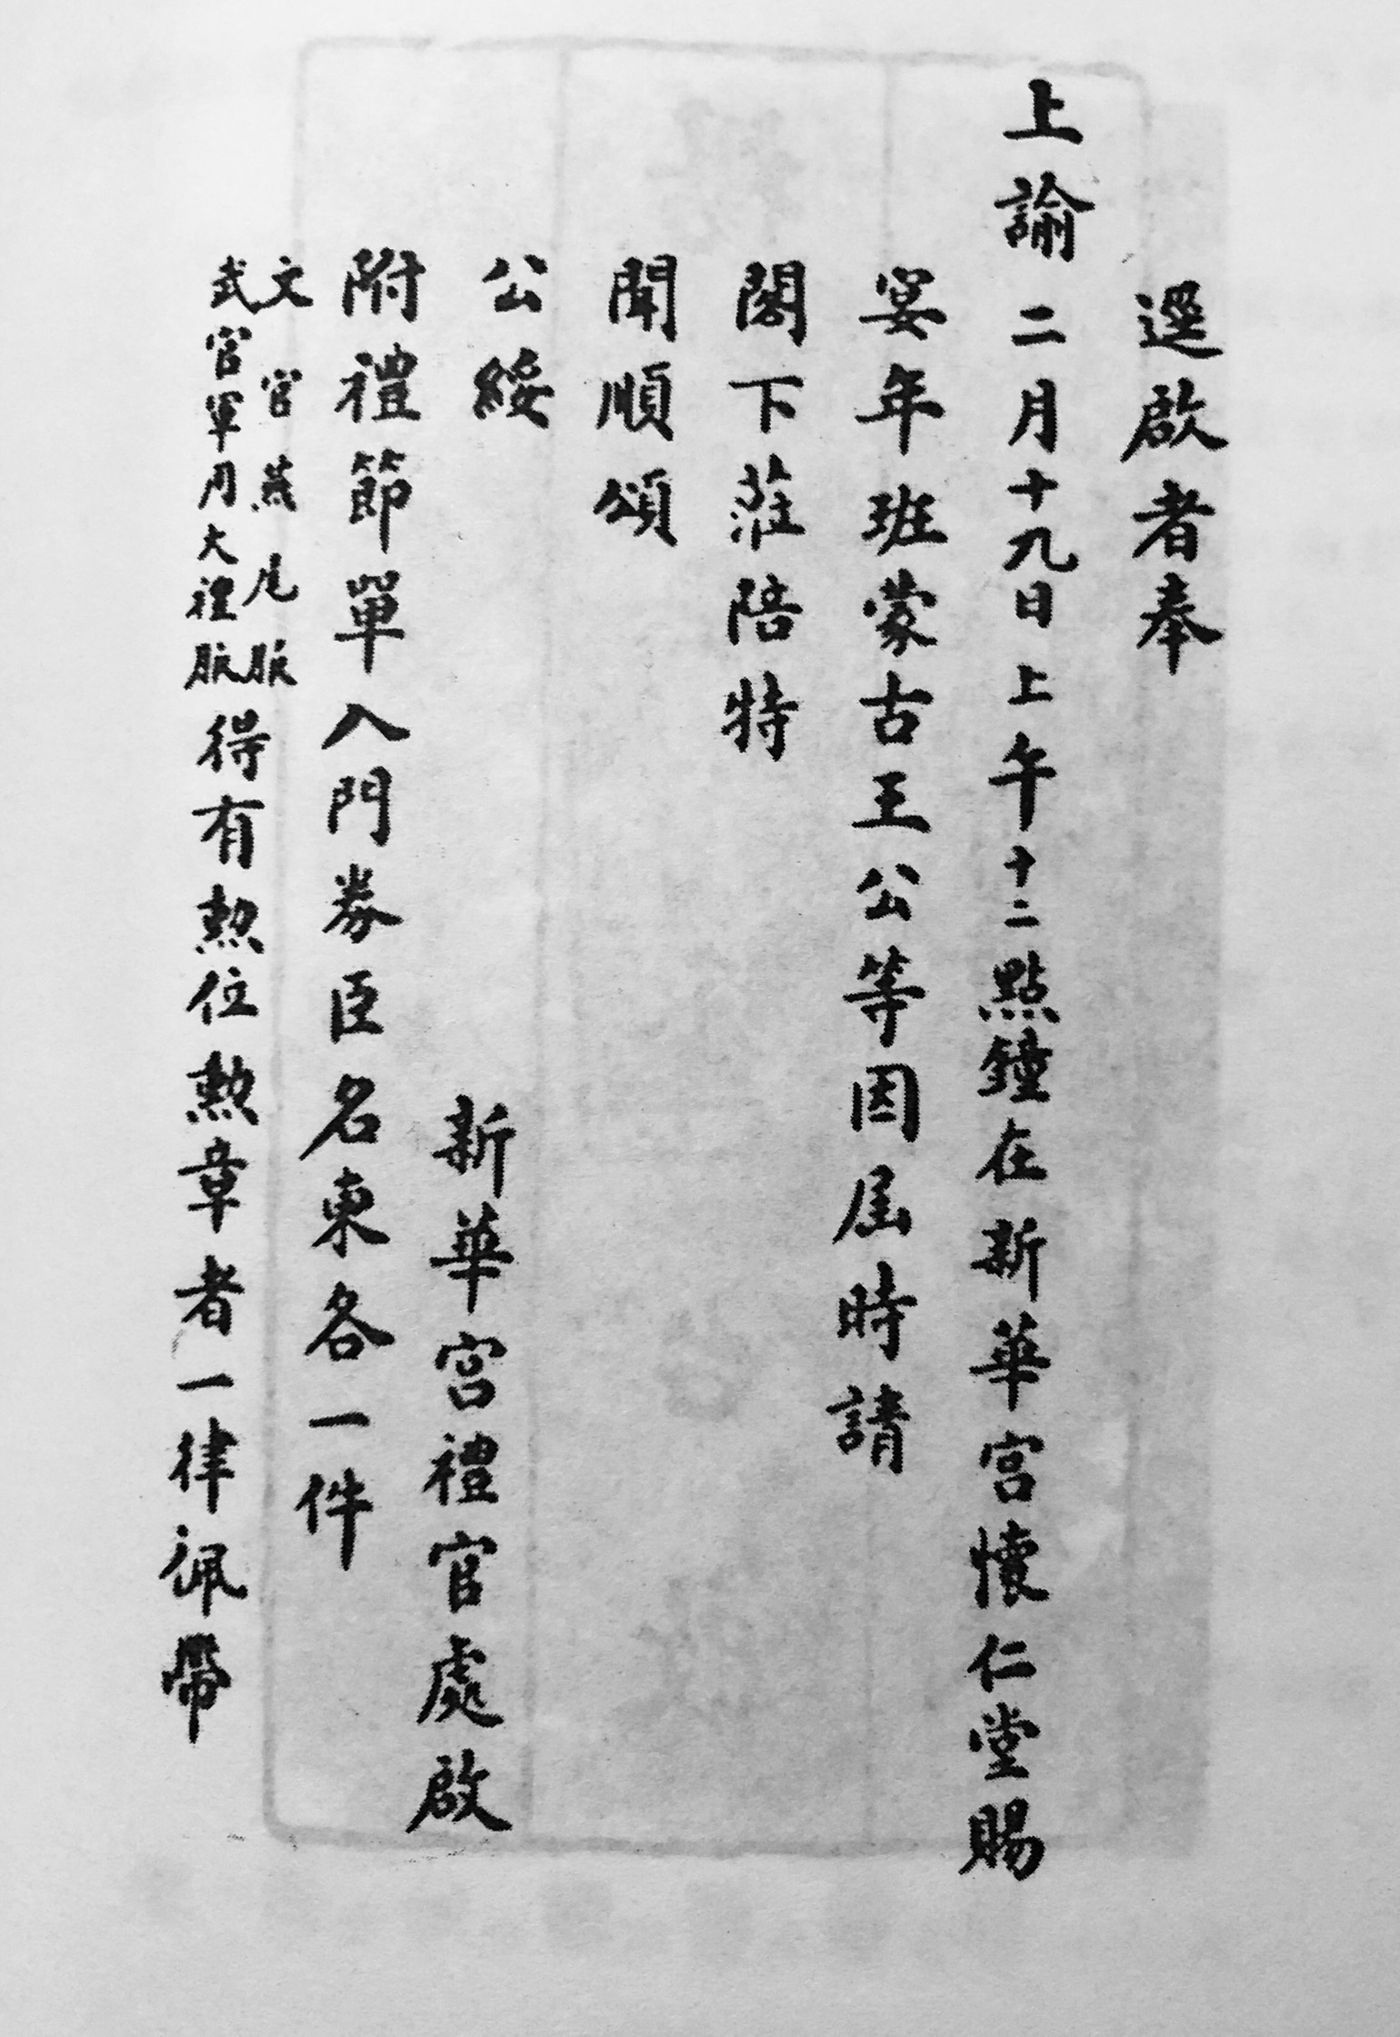 逕啟者奉
上諭二月十九日上午十二點鐘在新華宮懷仁堂賜
宴年班蒙古王公等因屆時請
閣下蒞陪特
聞順頌
公綏
新華宮禮官處啟
附禮節單入門券臣名柬各一件
文官燕尾服
武官軍用大禮服
得有勲位勲章者一律佩帶